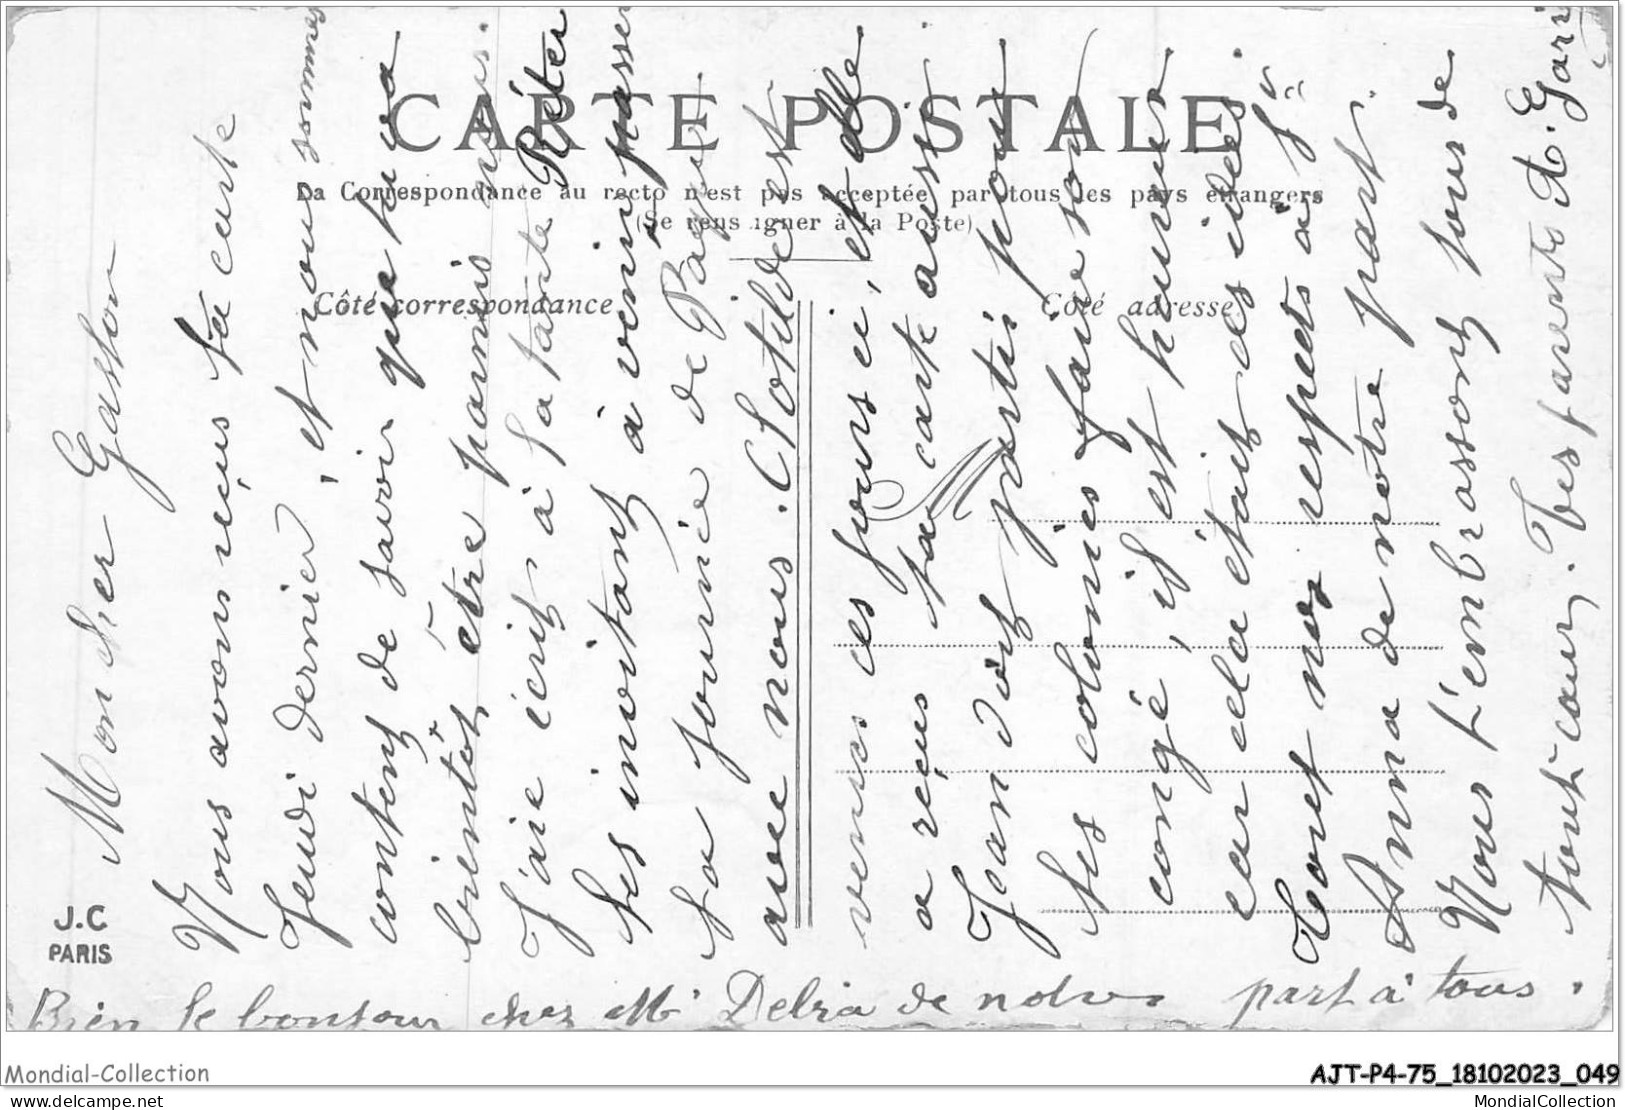 CARTE POSTALE
La Correspondance au recto n'est pas acceptée par tous les pays étrangers
(Se renseigner à la Poste)
Côté correspondance
Côté adresse
M
J.C
PARIS
Mon cher Gaston
Nous avons reçus ta carte
Jeudi dernier, et nous sommes
contents de savoir que tu va
bientôt être parmis nous.
J'aie écrit à ta tante
les invitant à venir passer
la journée de Paques
avec nous. Clotilde est
venues ces jours ci, et elle
a reçus ta carte aussi.
Jean doit partir pour
les colonies faire son
congé, il est heureux
car cela était des idées
nos respects à
Anna de notre part.
Nous t'embrassons tous de
tout cœur. Tes parents A. E. Gari
Bien le bonjour chez Mr Delria de notres part à tous.
Mondial-Collection
AJT-P4-75_18102023_049
www.delcampe.net
MondialCollection